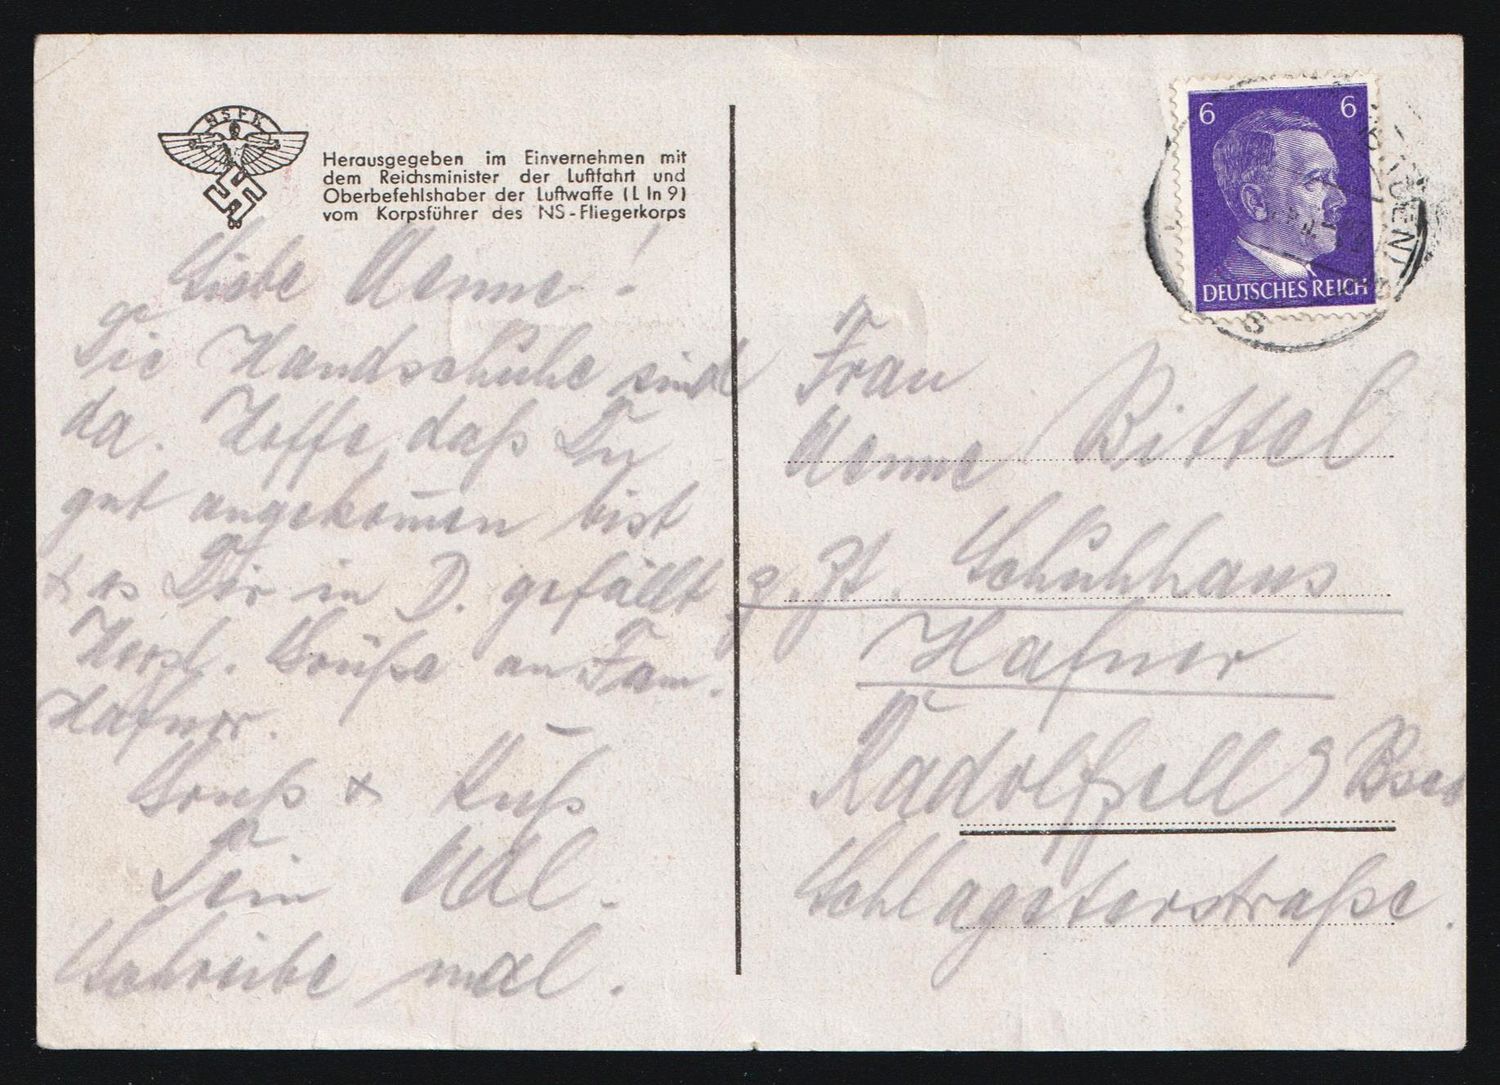 NSFK
Herausgegeben im Einvernehmen mit
dem Reichsminister der Luftfahrt und
Oberbefehlshaber der Luftwaffe (L In 9)
vom Korpsführer des NS-Fliegerkorps
Liebe Aenne!
Die Handschuhe sind
da. Hoffe, daß Du
gut angekom̄en bist
& es Dir in D. gefällt
Herzl. Grüße an Fam.
Hafner.
Gruß & Kuß
Dein
Schreibe mal.
6 6
DEUTSCHES REICH
Frau
Aenne Bittel
z. Zt. Schuhhaus
Hafner
Radolfzell
Schlageterstraße.